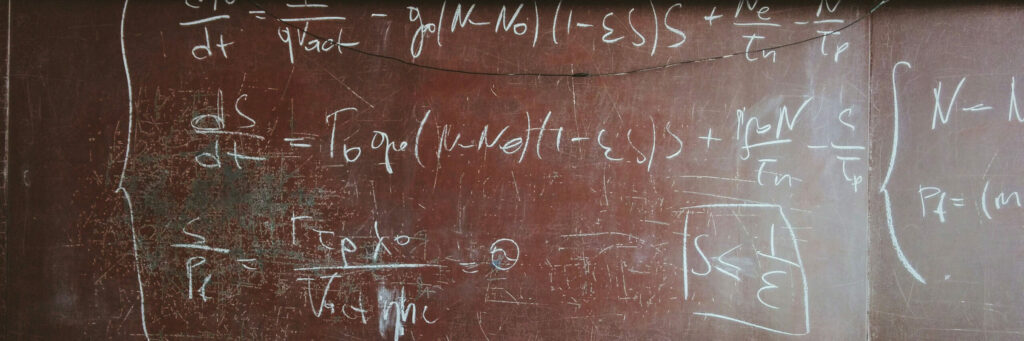 dN/dt = I/qVact - g₀(N-N₀)(1-εS)S + Ne/τn - N/τp
dS/dt = Γ₀g₀(N-N₀)(1-εS)S + N/τn - S/τp
S/Pf = Γτpλ₀/Vactηhc = ϑ
S ≤ 1/ε
{ N - N
Pf = (m